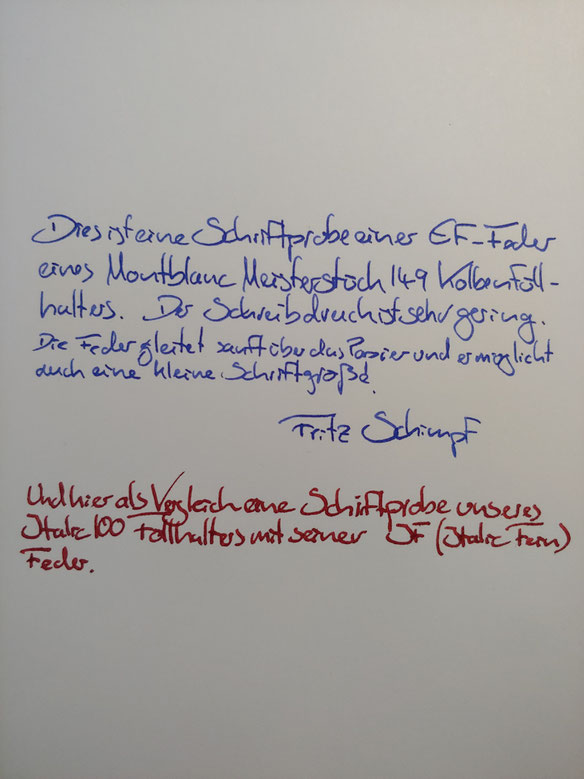 Dies ist eine Schriftprobe einer EF-Feder
eines Montblanc Meisterstück 149 Kolbenfüll-
halters. Der Schreibdruck ist sehr gering.
Die Feder gleitet sanft über das Papier und ermöglicht
auch eine kleine Schriftgröße.
Fritz Schimpf
Und hier als Vergleich eine Schriftprobe unseres
Italic 100 Füllhalters mit seiner IF (Italic Fein)
Feder.